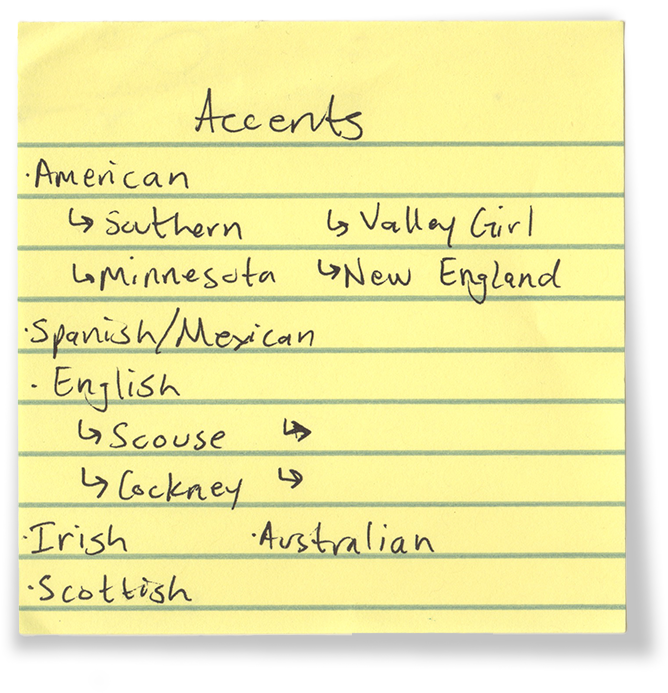 Accents
·American
↳ Southern ↳ Valley Girl
↳ Minnesota ↳ New England
·Spanish/Mexican
· English
↳ Scouse ↳
↳ Cockney ↳
·Irish ·Australian
·Scottish